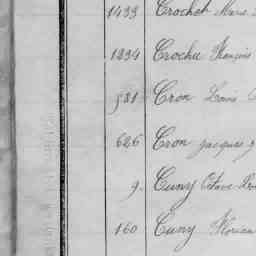 1433 Crochet Marie
1234 Crochu François
581 Cron Louis
626 Cron Jacques
9. Cuny Octave
160 Cuny Florian